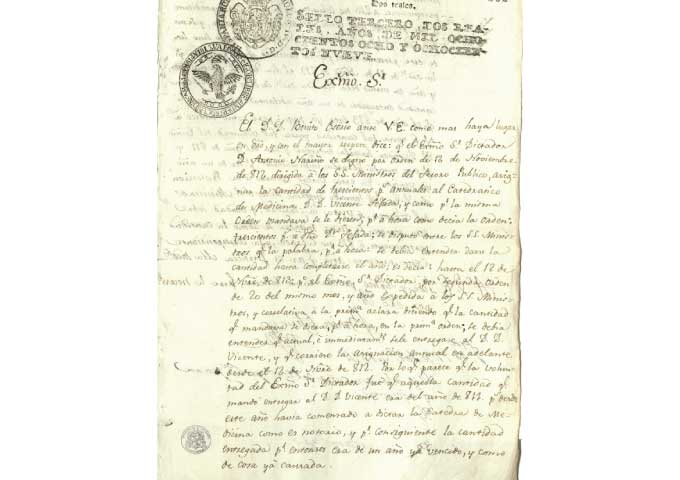 Dos reales.
SELLO TERCERO, DOS REA-
LES, AÑOS DE MIL OCHO-
CIENTOS OCHO Y OCHOCIEN-
TOS NUEVE.
Exmõ. S.r
El D. D. Benito Osorio ante V.E. como mas haya lugar
en dro, y con el mayor respeto dice: q.e el Exmõ S.r Dictador
D. Antonio Nariño se dignó por orden de 12 de Noviembre
de 812, dirigida à los SS. Ministros del Tesoro Publico, asig-
nar la cantidad de trescientos p.s annuales al Catedratico
de Medicina D. D. Vicente Texada; y como p.r la misma
Orden mandava se le diesen, p.r ahora como decia la orden:
trescientos p.s à dho D.r Texada; se disputó entre los SS. Minis-
tros q.e la palabra, p.r ahora: se debia entender dara la
cantidad hasta completarse el año, es decir: hasta el 12 de
Nvre de 813; p.o el Exmõ, S.r Dictador, por segunda orden
de 20 del mismo mes, y año expedida à los SS. Minis-
tros, y correlativa à la prim.a aclara diciendo q.e la cantidad
q.e mandava se diera, p.r ahora, en la prim.a orden; se debia
entender q.e actual, è inmediatam.te sele entregase al D. D.
Vicente, y q.e corriere la asignacion annual en adelante
desde el 12 de Nvre de 812. Por lo q.e parece q.e la volun-
tad del Exmõ S.r Dictador fue q.e aquella cantidad q.e
mandó entregar al D. D Vicente era del año de 811. p.s desde
este año havia comenzado à dictar la Catedra de Me-
dicina como es notorio, y p.r consiguiente la cantidad
entregada p.r entonces era de un año yà vencido, y como
de cosa yà causada.